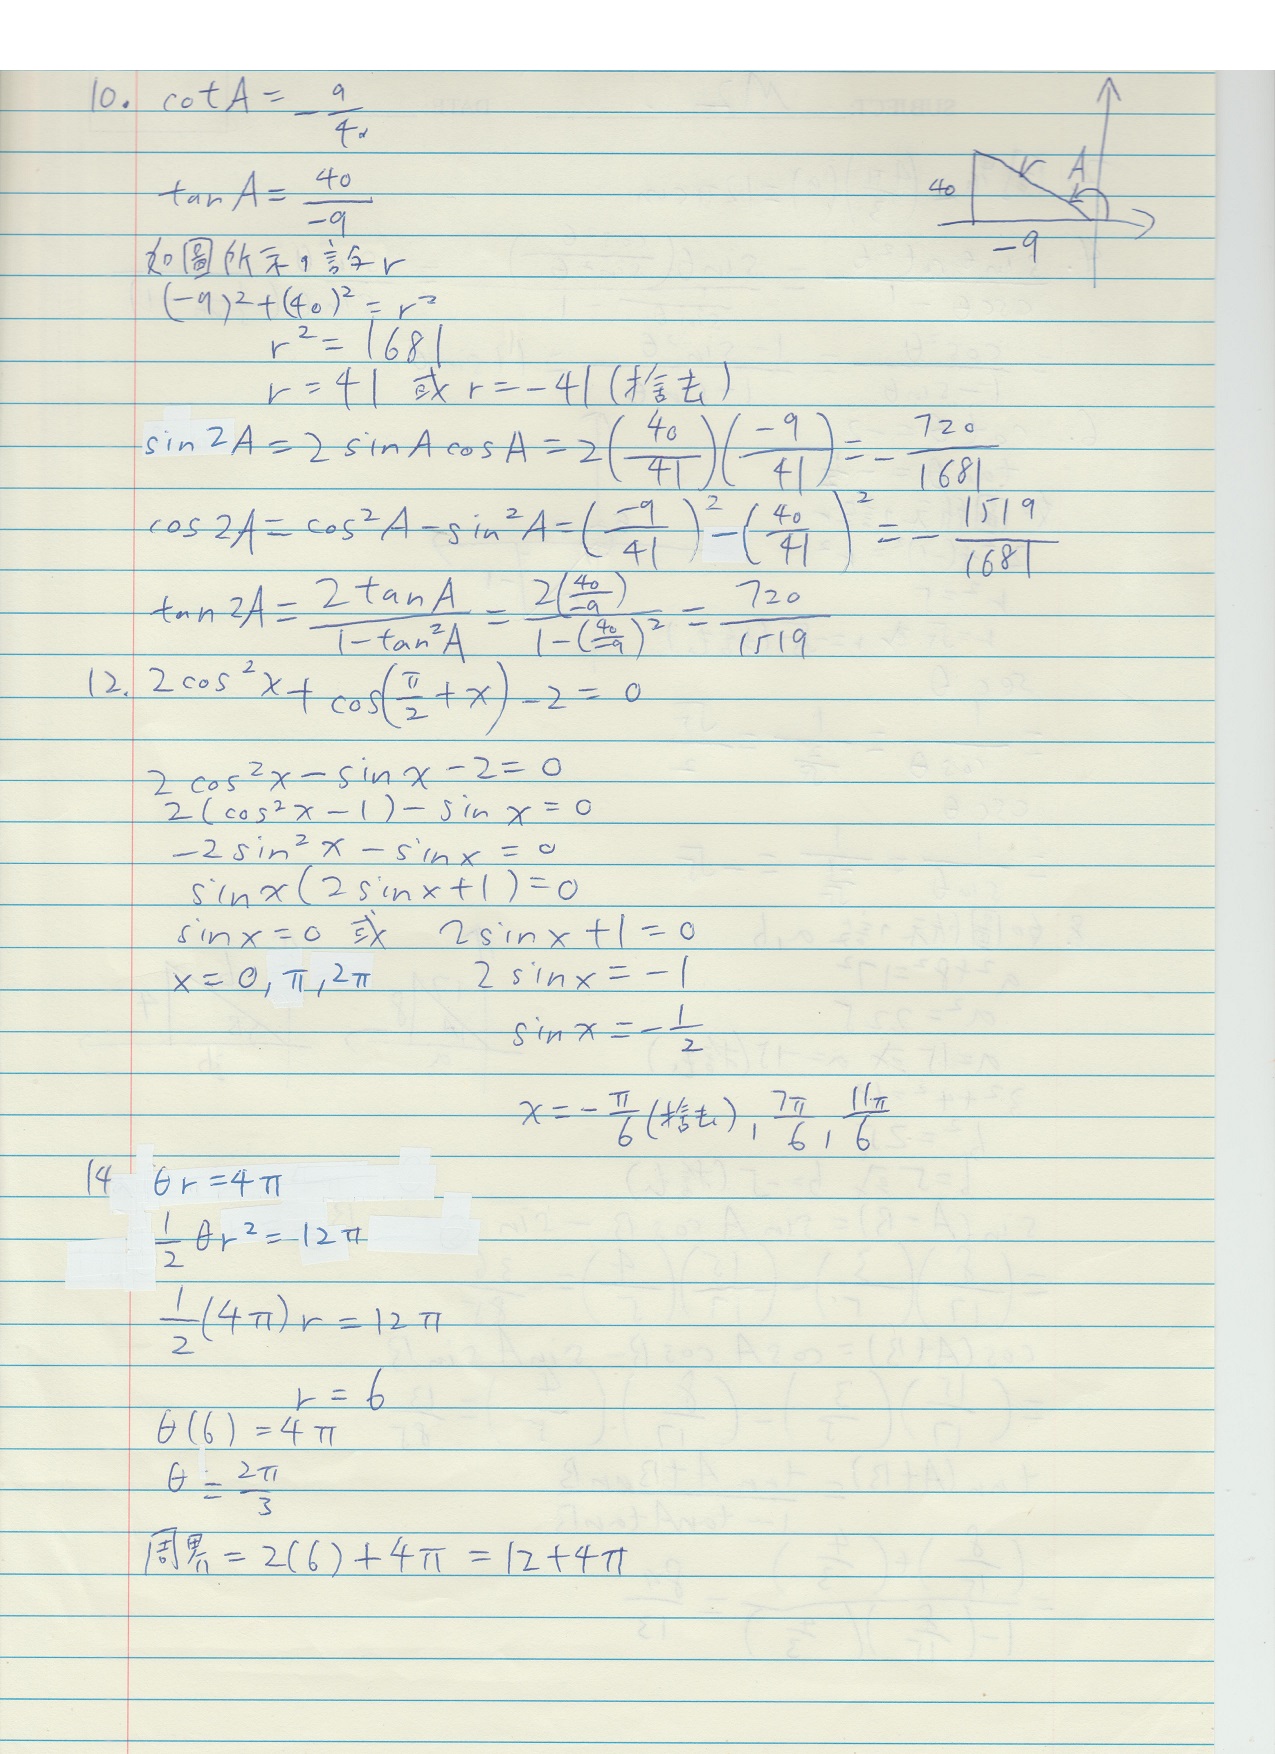 10. cotA = -9/40
tanA = 40/-9
如圖所示，設r
(-9)²+(40)² = r²
r² = 1681
r = 41 或 r = -41 (捨去)
sin2A = 2 sinA cosA = 2(40/41)(-9/41) = -720/1681
cos2A = cos²A - sin²A = (-9/41)² - (40/41)² = -1519/1681
tan2A = 2tanA/(1-tan²A) = 2(40/-9)/(1-(40/-9)²) = 720/1519
40
r
A
-9
12. 2cos²x + cos(π/2 + x) - 2 = 0
2cos²x - sinx - 2 = 0
2(cos²x - 1) - sinx = 0
-2sin²x - sinx = 0
sinx(2sinx+1) = 0
sinx = 0 或 2sinx + 1 = 0
x = 0, π, 2π 2sinx = -1
sinx = -1/2
x = -π/6 (捨去), 7π/6, 11π/6
14 θr = 4π
1/2 θr² = 12π
1/2 (4π)r = 12π
r = 6
θ(6) = 4π
θ = 2π/3
周界 = 2(6) + 4π = 12+4π